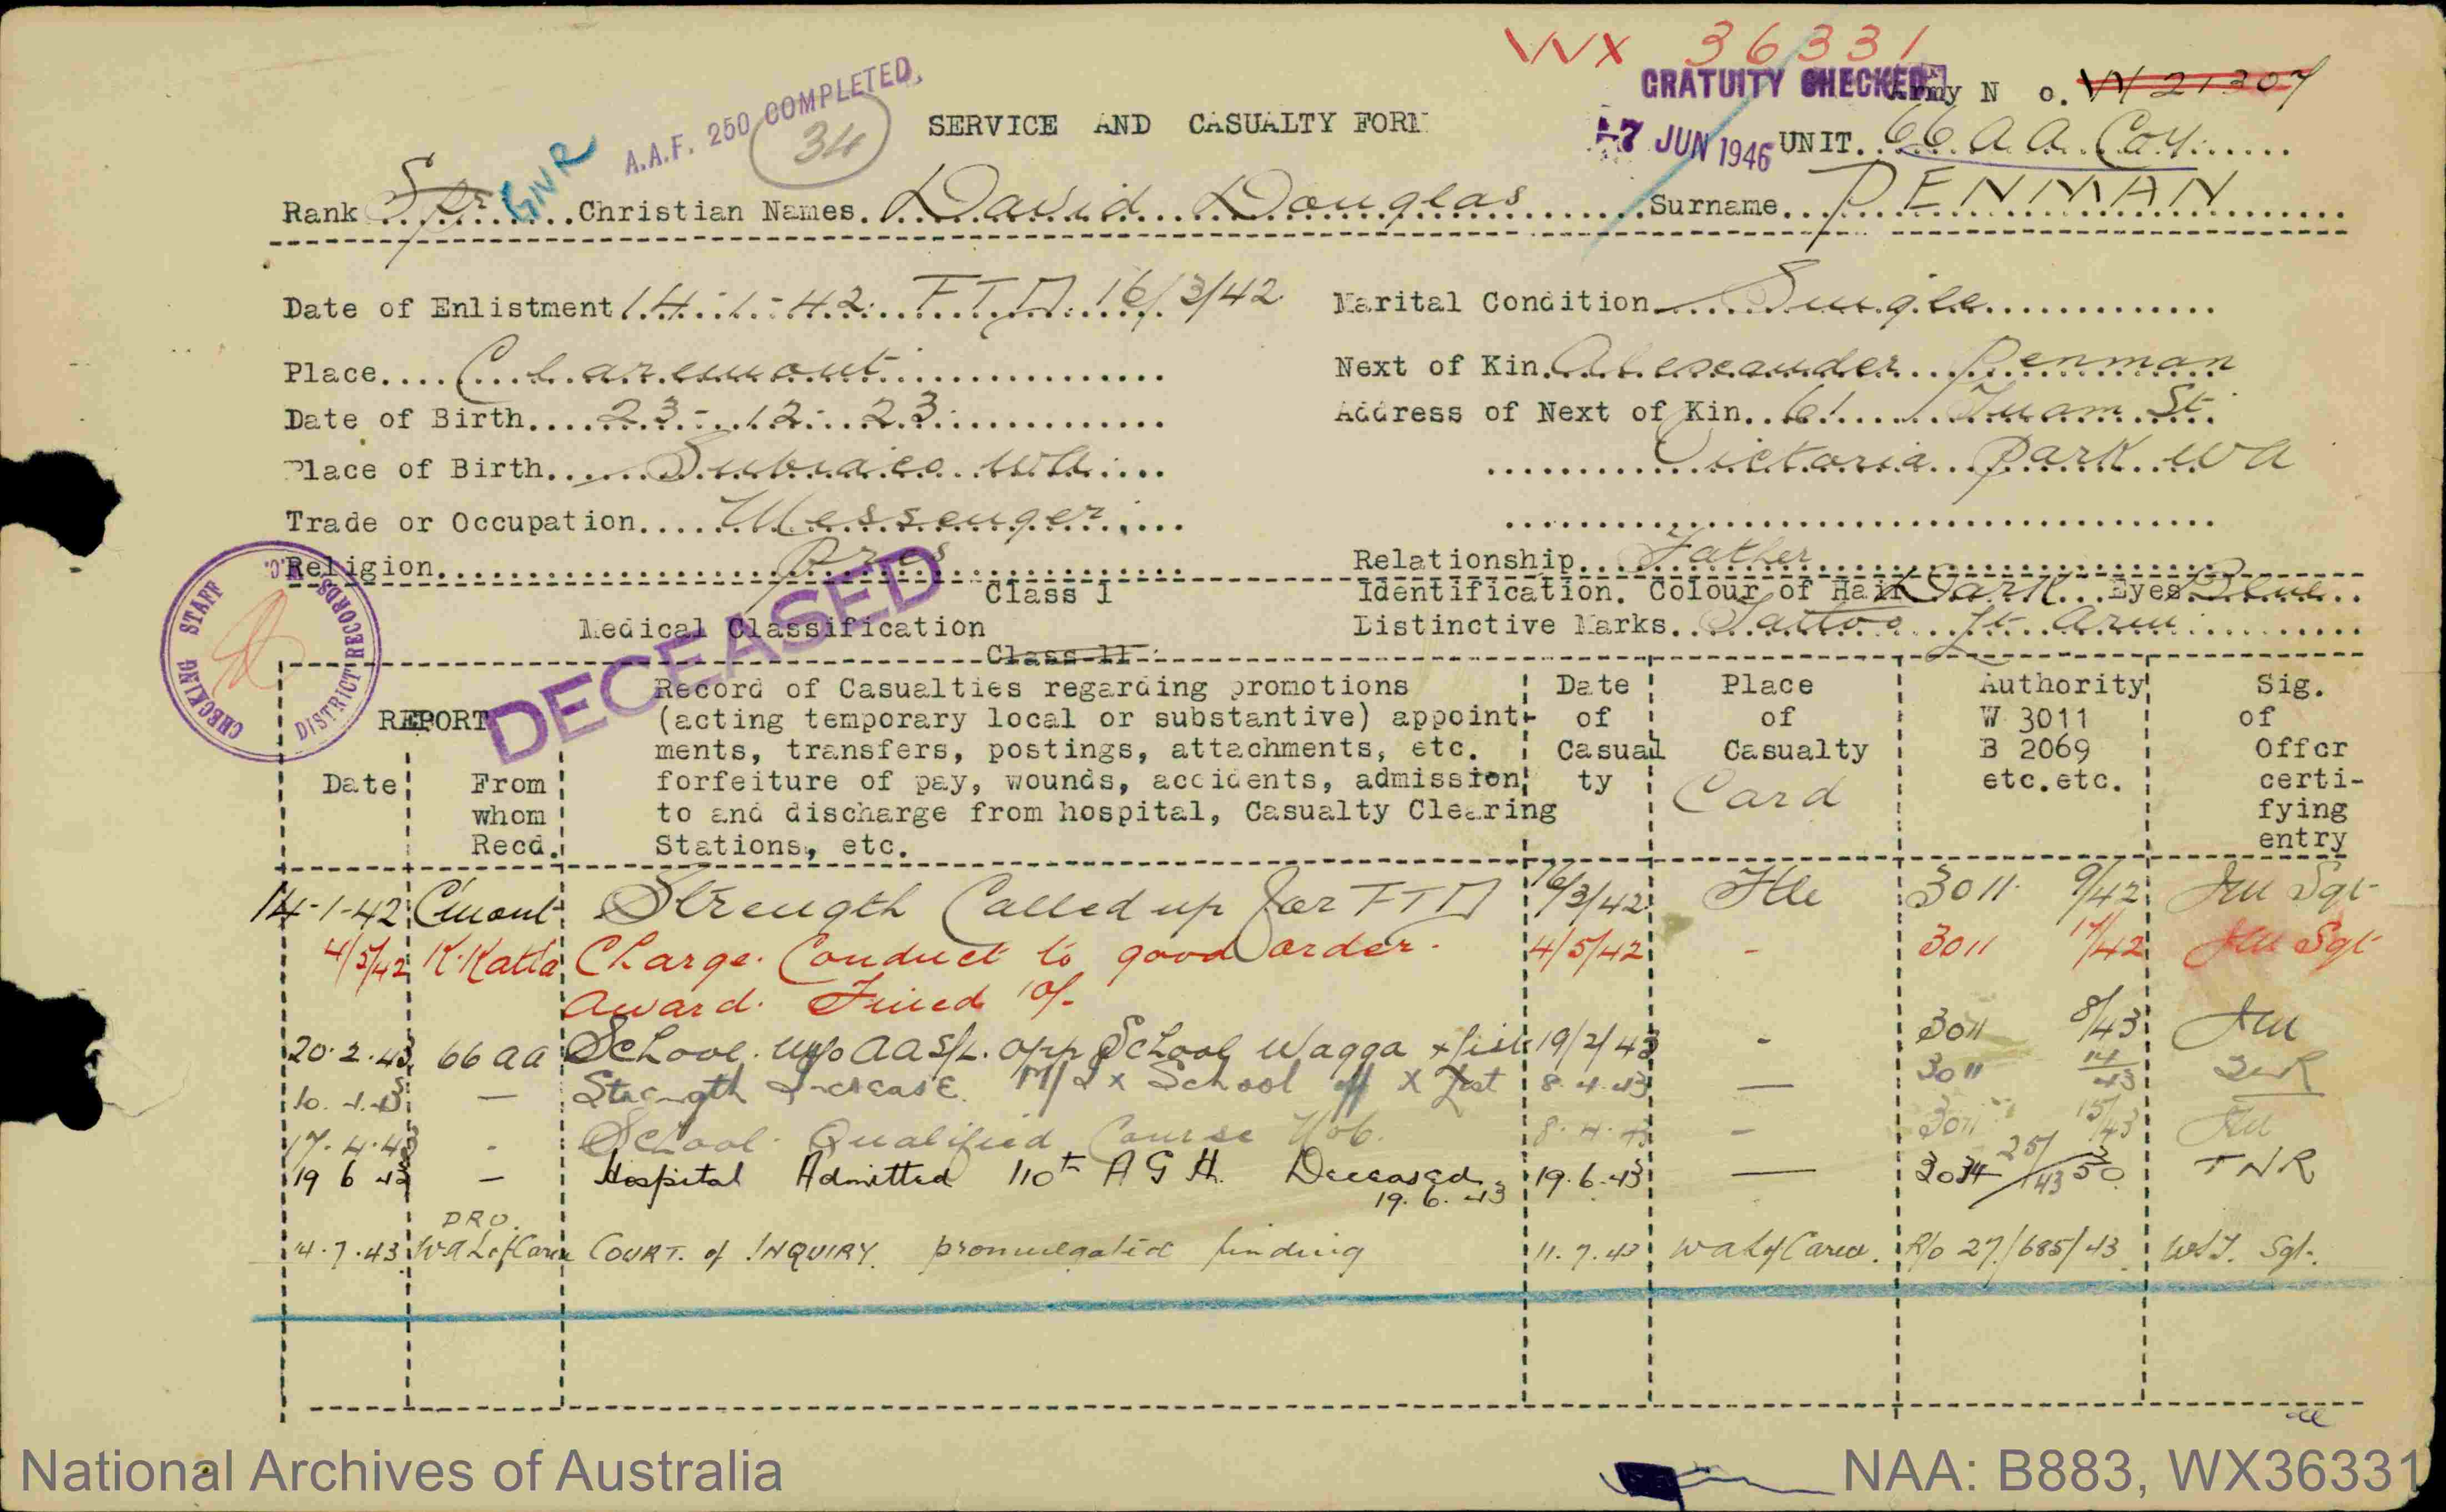 WX 36331
GRATUITY CHECKED
Army N o. W 21307
A.A.F. 250 COMPLETED
34
SERVICE AND CASUALTY FORM
7 JUN 1946
UNIT. 66 A A Coy
Rank Spr Christian Names. David Douglas Surname PENMAN
Date of Enlistment 14-1-42. FTD. 16/3/42
Marital Condition Single
Place Claremont
Next of Kin. Alexander Penman
Date of Birth 23-12-23
Address of Next of Kin 61 Tuam St.
Place of Birth Subiaco WA
Victoria Park WA
Trade or Occupation Messenger
Religion Pres
Relationship Father
Class 1
Identification. Colour of Hair Dark Eyes Blue
Medical Classification
Distinctive Marks. Tattoo Lt Arm
Class 11
CHECKING STAFF DISTRICT RECORDS
DECEASED
REPORT
Date
From whom Recd.
Record of Casualties regarding promotions
(acting temporary local or substantive) appoint-
ments, transfers, postings, attachments, etc.
forfeiture of pay, wounds, accidents, admission
to and discharge from hospital, Casualty Clearing
Stations, etc.
Date of Casual ty
Place of Casualty
Card
Authority W 3011 B 2069 etc.etc.
Sig. of Offcr certi- fying entry
14-1-42 C'mont Strength Called up for FTD 16/3/42 Ftle 3011 9/42 Sgt
4/5/42 K.Katta Charge. Conduct to good order. 4/5/42 - 3011 17/42 Sgt
Award. Fined 10/-
20.2.43 66 AA School. AA S/L. Opp School Wagga x list 19/2/43 - 3011 8/43
10.4.43 — Strength Increase. M/I x School X List 8.4.43 — 3011 14/43
17.4.43 - School. Qualified Course 8.4.43 - 3011 15/43
19 6 43 — Hospital Admitted 110th A G H. Deceased 19.6.43 19.6.43 — 3034 25/43 50 TNR
DRO.
14.7.43 W.A. L of C area COURT. of INQUIRY. promulgated finding 11.7.43 WA L of C area. R/o 27/685/43 Sgt.
National Archives of Australia
NAA: B883, WX36331